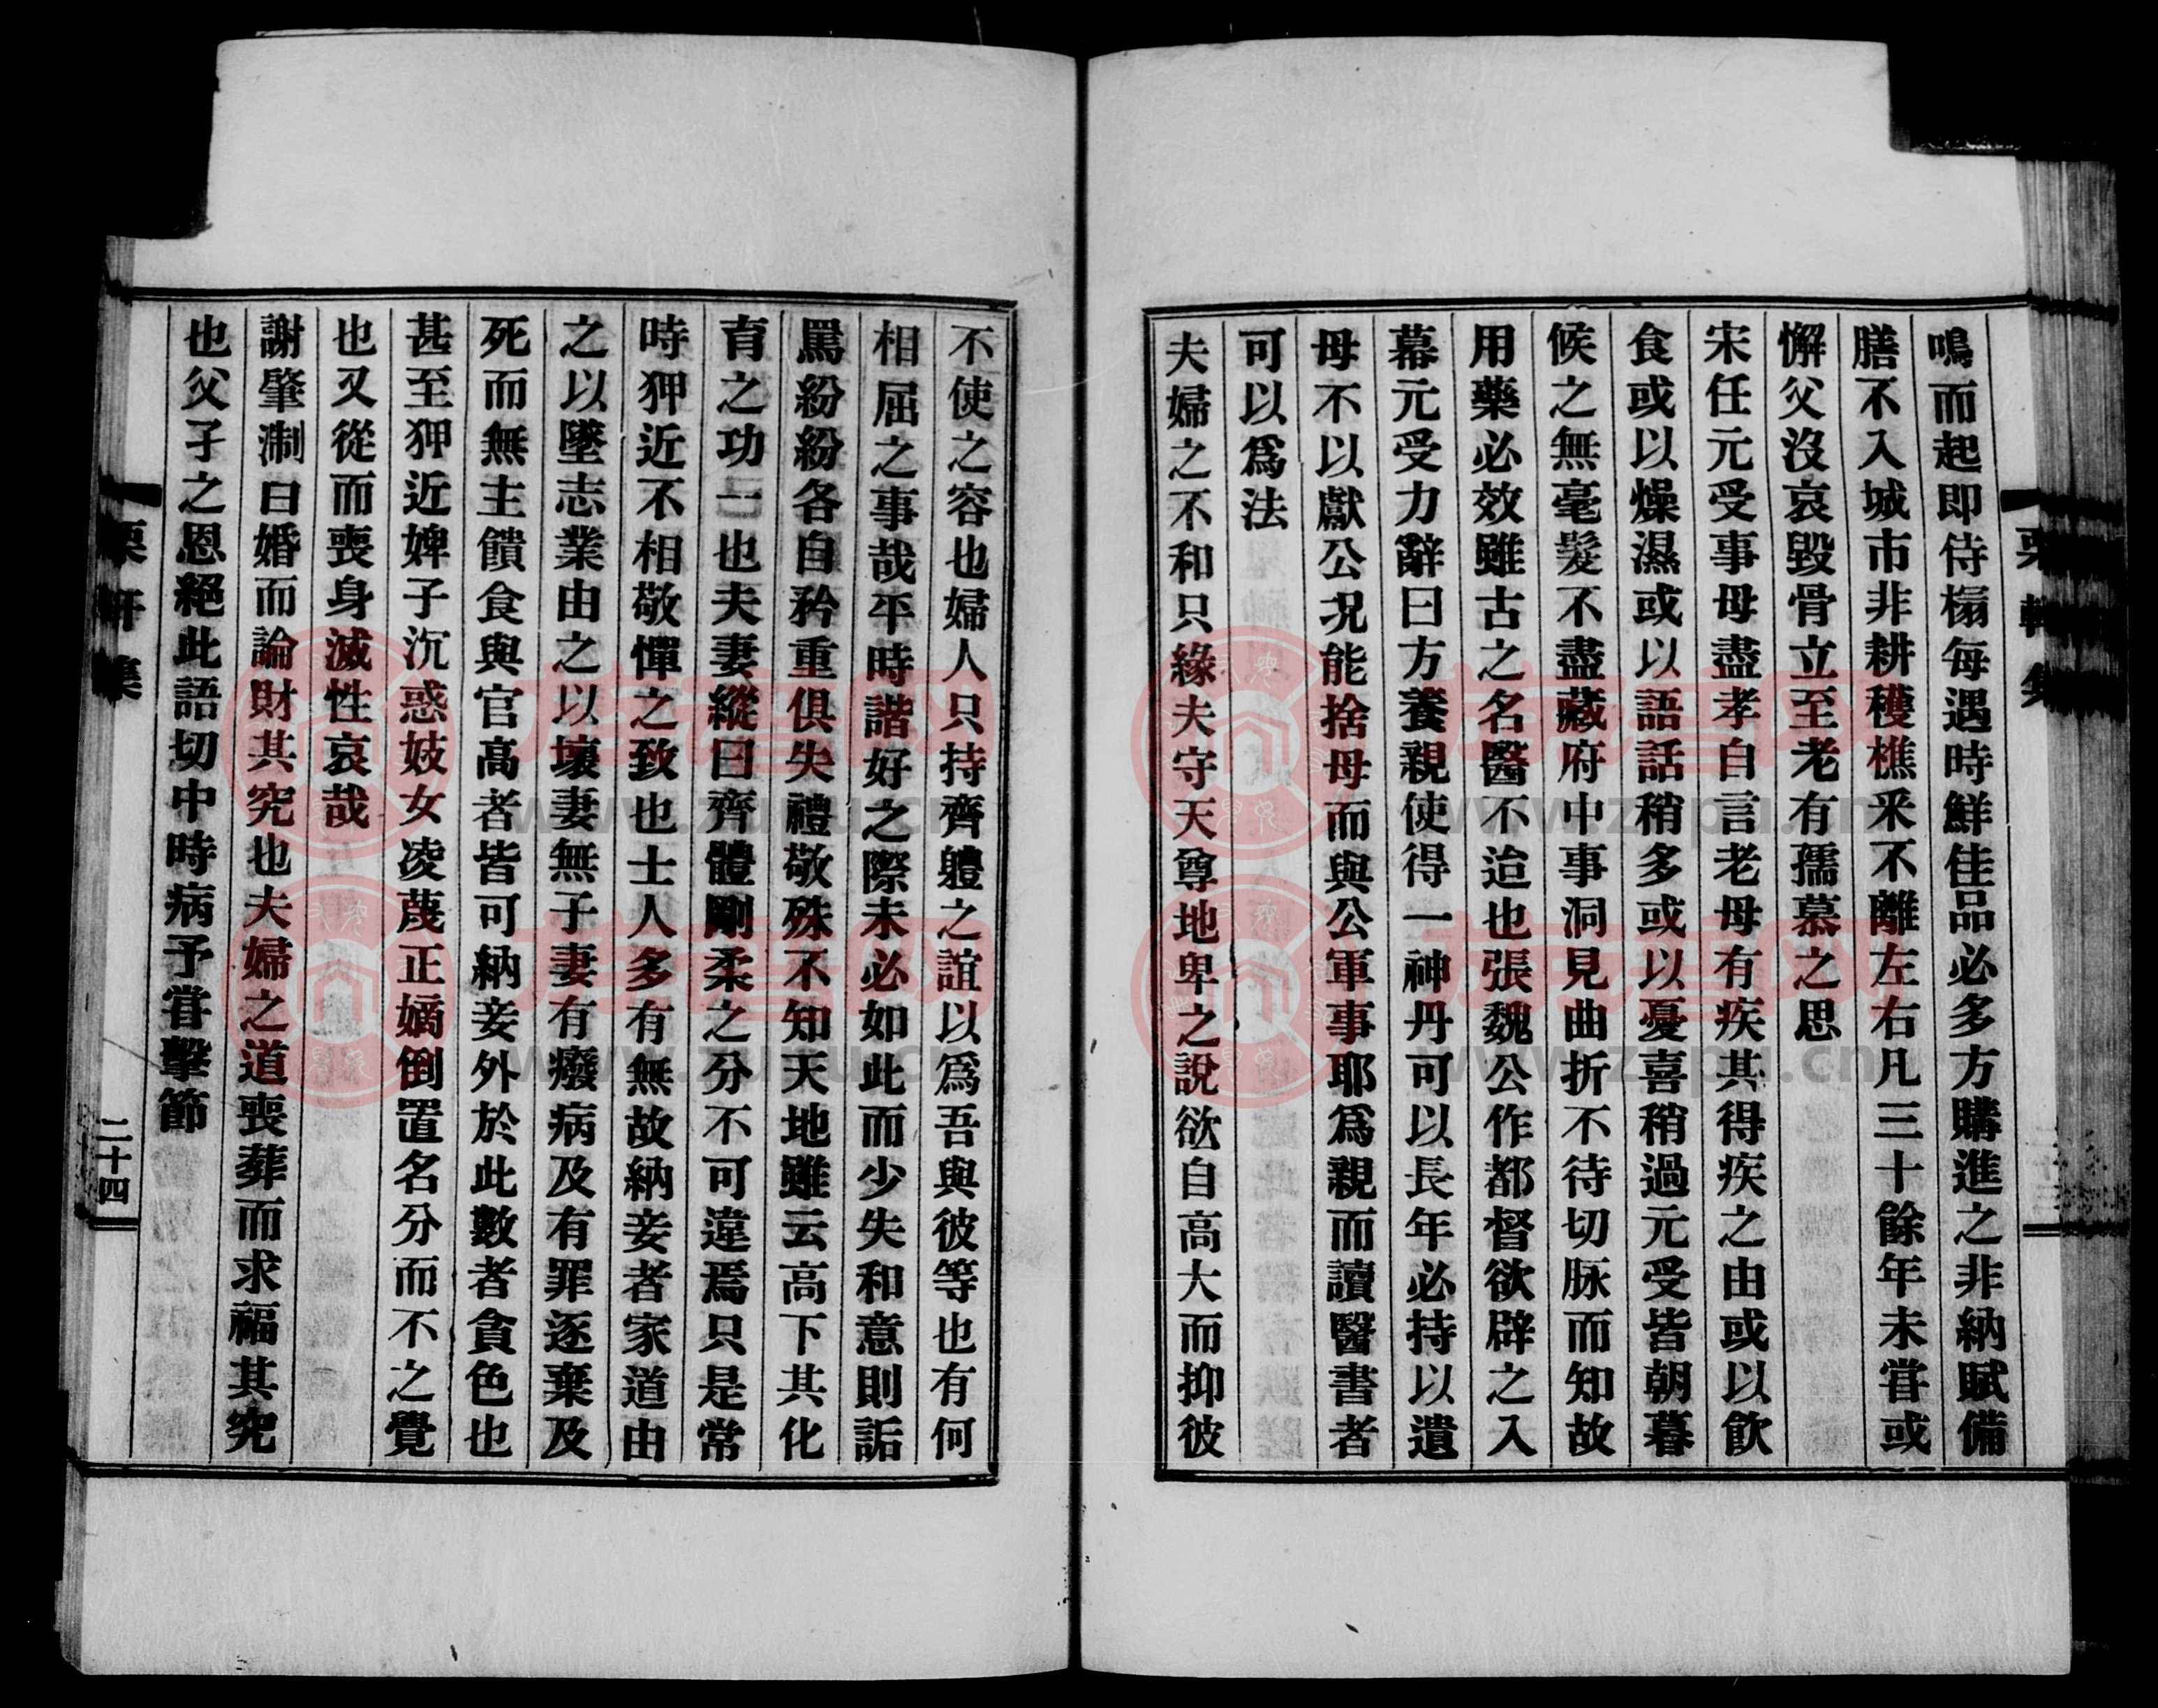 鳴而起即侍榻每遇時鮮佳品必多方購進之非納賦備
膳不入城市非耕穫樵釆不離左右凡三十餘年未甞或
懈父沒哀毀骨立至老有孺慕之思
宋任元受事母盡孝自言老母有疾其得疾之由或以飲
食或以燥濕或以語話稍多或以憂喜稍過元受皆朝暮
候之無毫髮不盡藏府中事洞見曲折不待切脉而知故
用藥必效雖古之名醫不迨也張魏公作都督欲辟之入
幕元受力辭曰方養親使得一神丹可以長年必持以遺
母不以獻公况能捨母而與公軍事耶爲親而讀醫書者
可以爲法
夫婦之不和只緣夫守天尊地卑之說欲自高大而抑彼
不使之容也婦人只持齊軆之誼以爲吾與彼等也有何
相屈之事哉平時諧好之際未必如此而少失和意則詬
罵紛紛各自矜重俱失禮敬殊不知天地雖云高下其化
育之功一也夫妻縱曰齊體剛柔之分不可違焉只是常
時狎近不相敬憚之致也士人多有無故納妾者家道由
之以墜志業由之以壞妻無子妻有癈病及有罪逐棄及
死而無主饋食與官高者皆可納妾外於此數者貪色也
甚至狎近婢子沉惑妓女凌蔑正嫡倒置名分而不之覺
也又從而喪身滅性哀哉
謝肇淛曰婚而論財其究也夫婦之道喪葬而求福其究
也父子之恩絕此語切中時病予甞擊節
栗軒集
二十四